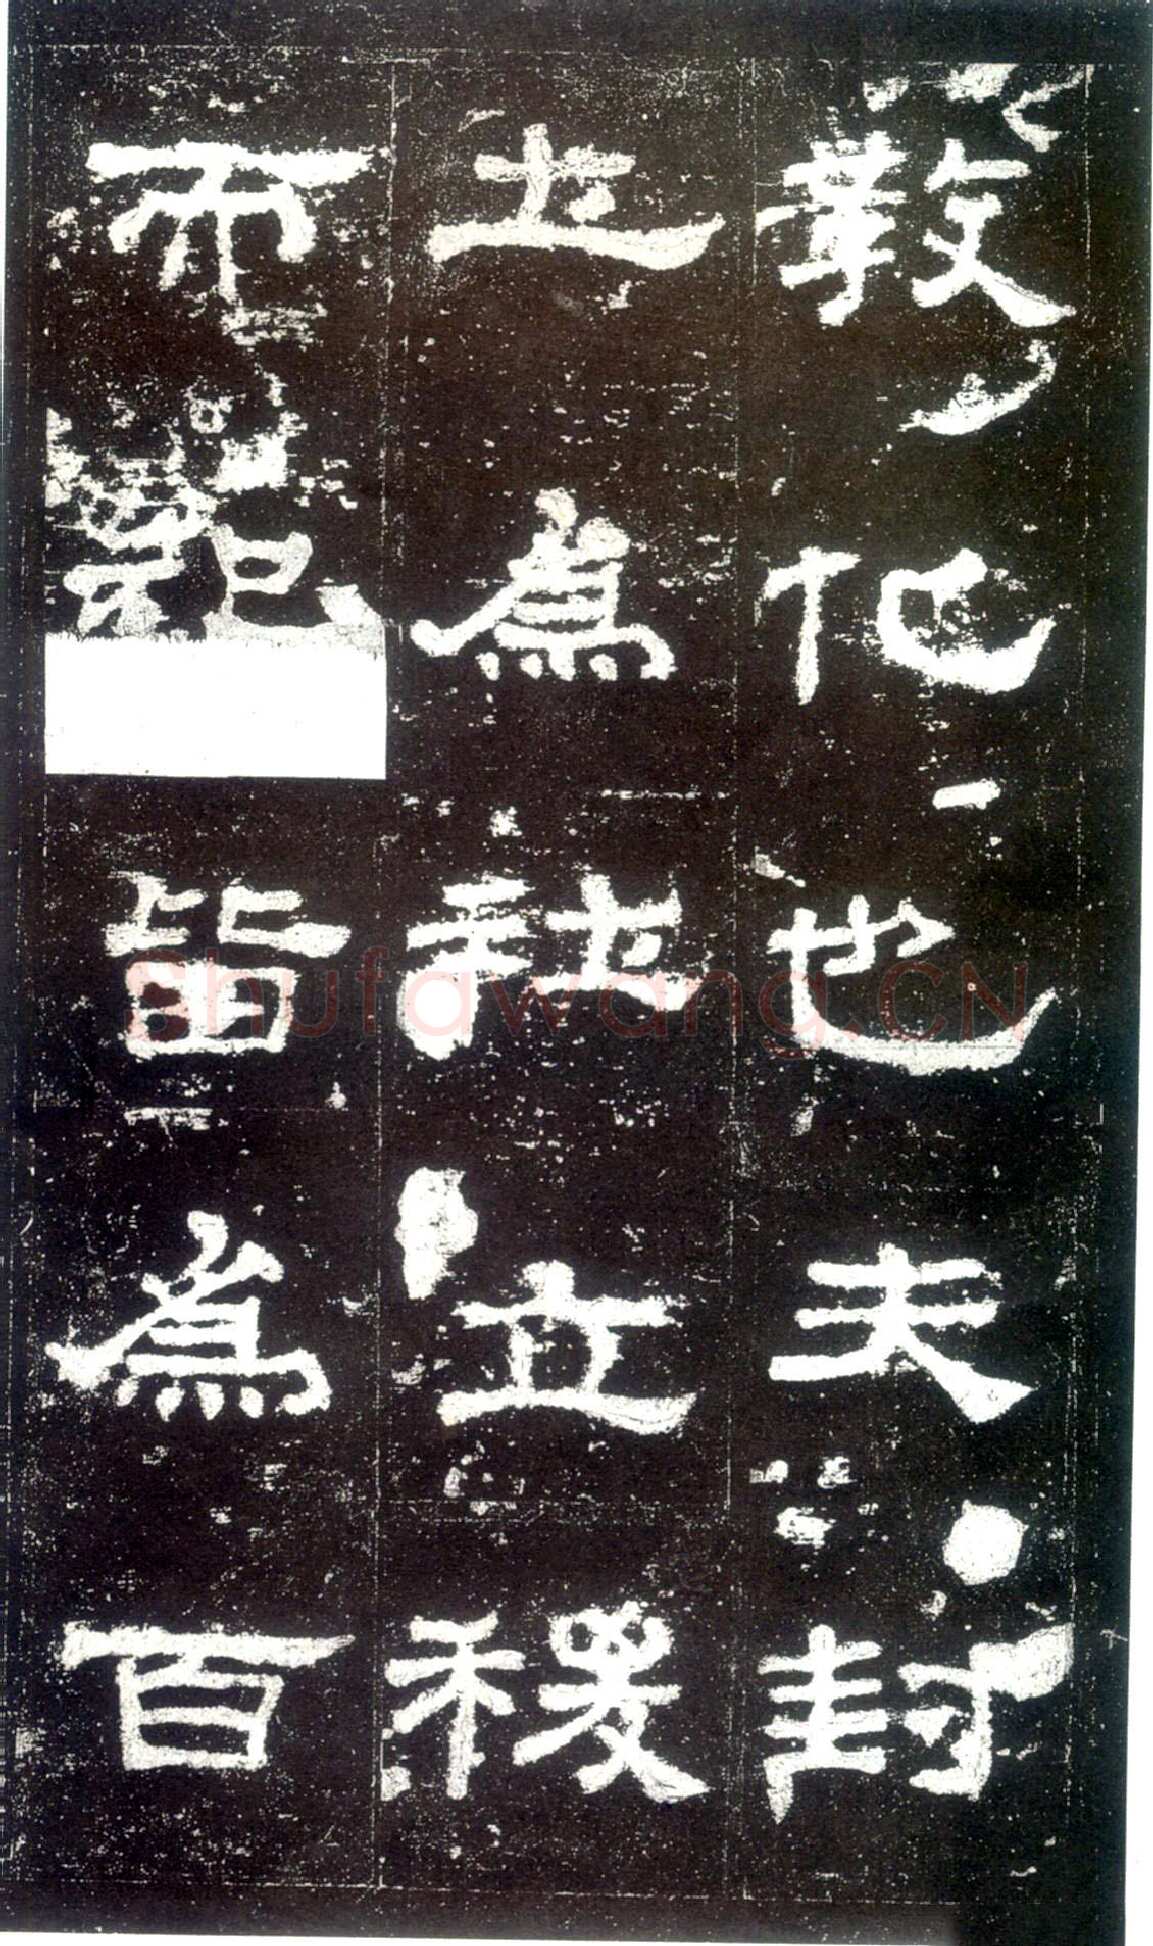 教化也夫封
土為社立稷
而祀皆為百
Shufawang.CN